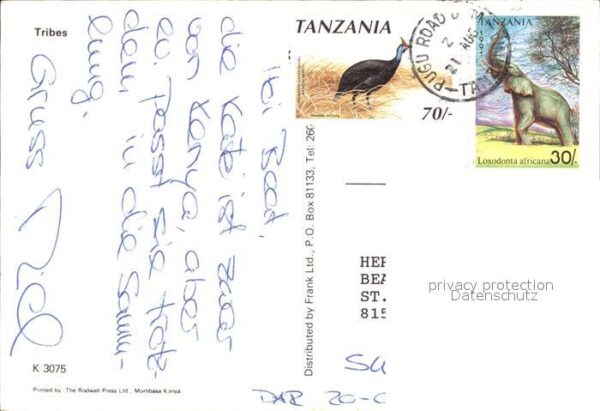 Tribes
TANZANIA
70/-
TANZANIA
1991
Loxodonta africana
30/-
PUGU ROAD
21 AUG
Hi Beat,
die Karte ist zwar
von Kenya, aber
es passt sie trotz-
dem in die Samm-
lung.
Gruss
Distributed by Frank Ltd., P.O. Box 81133, Tel: 260
HER
BEA
ST.
815
privacy protection
Datenschutz
K 3075
Printed by The Rodwell Press Ltd., Mombasa Kenya
DAR 20-